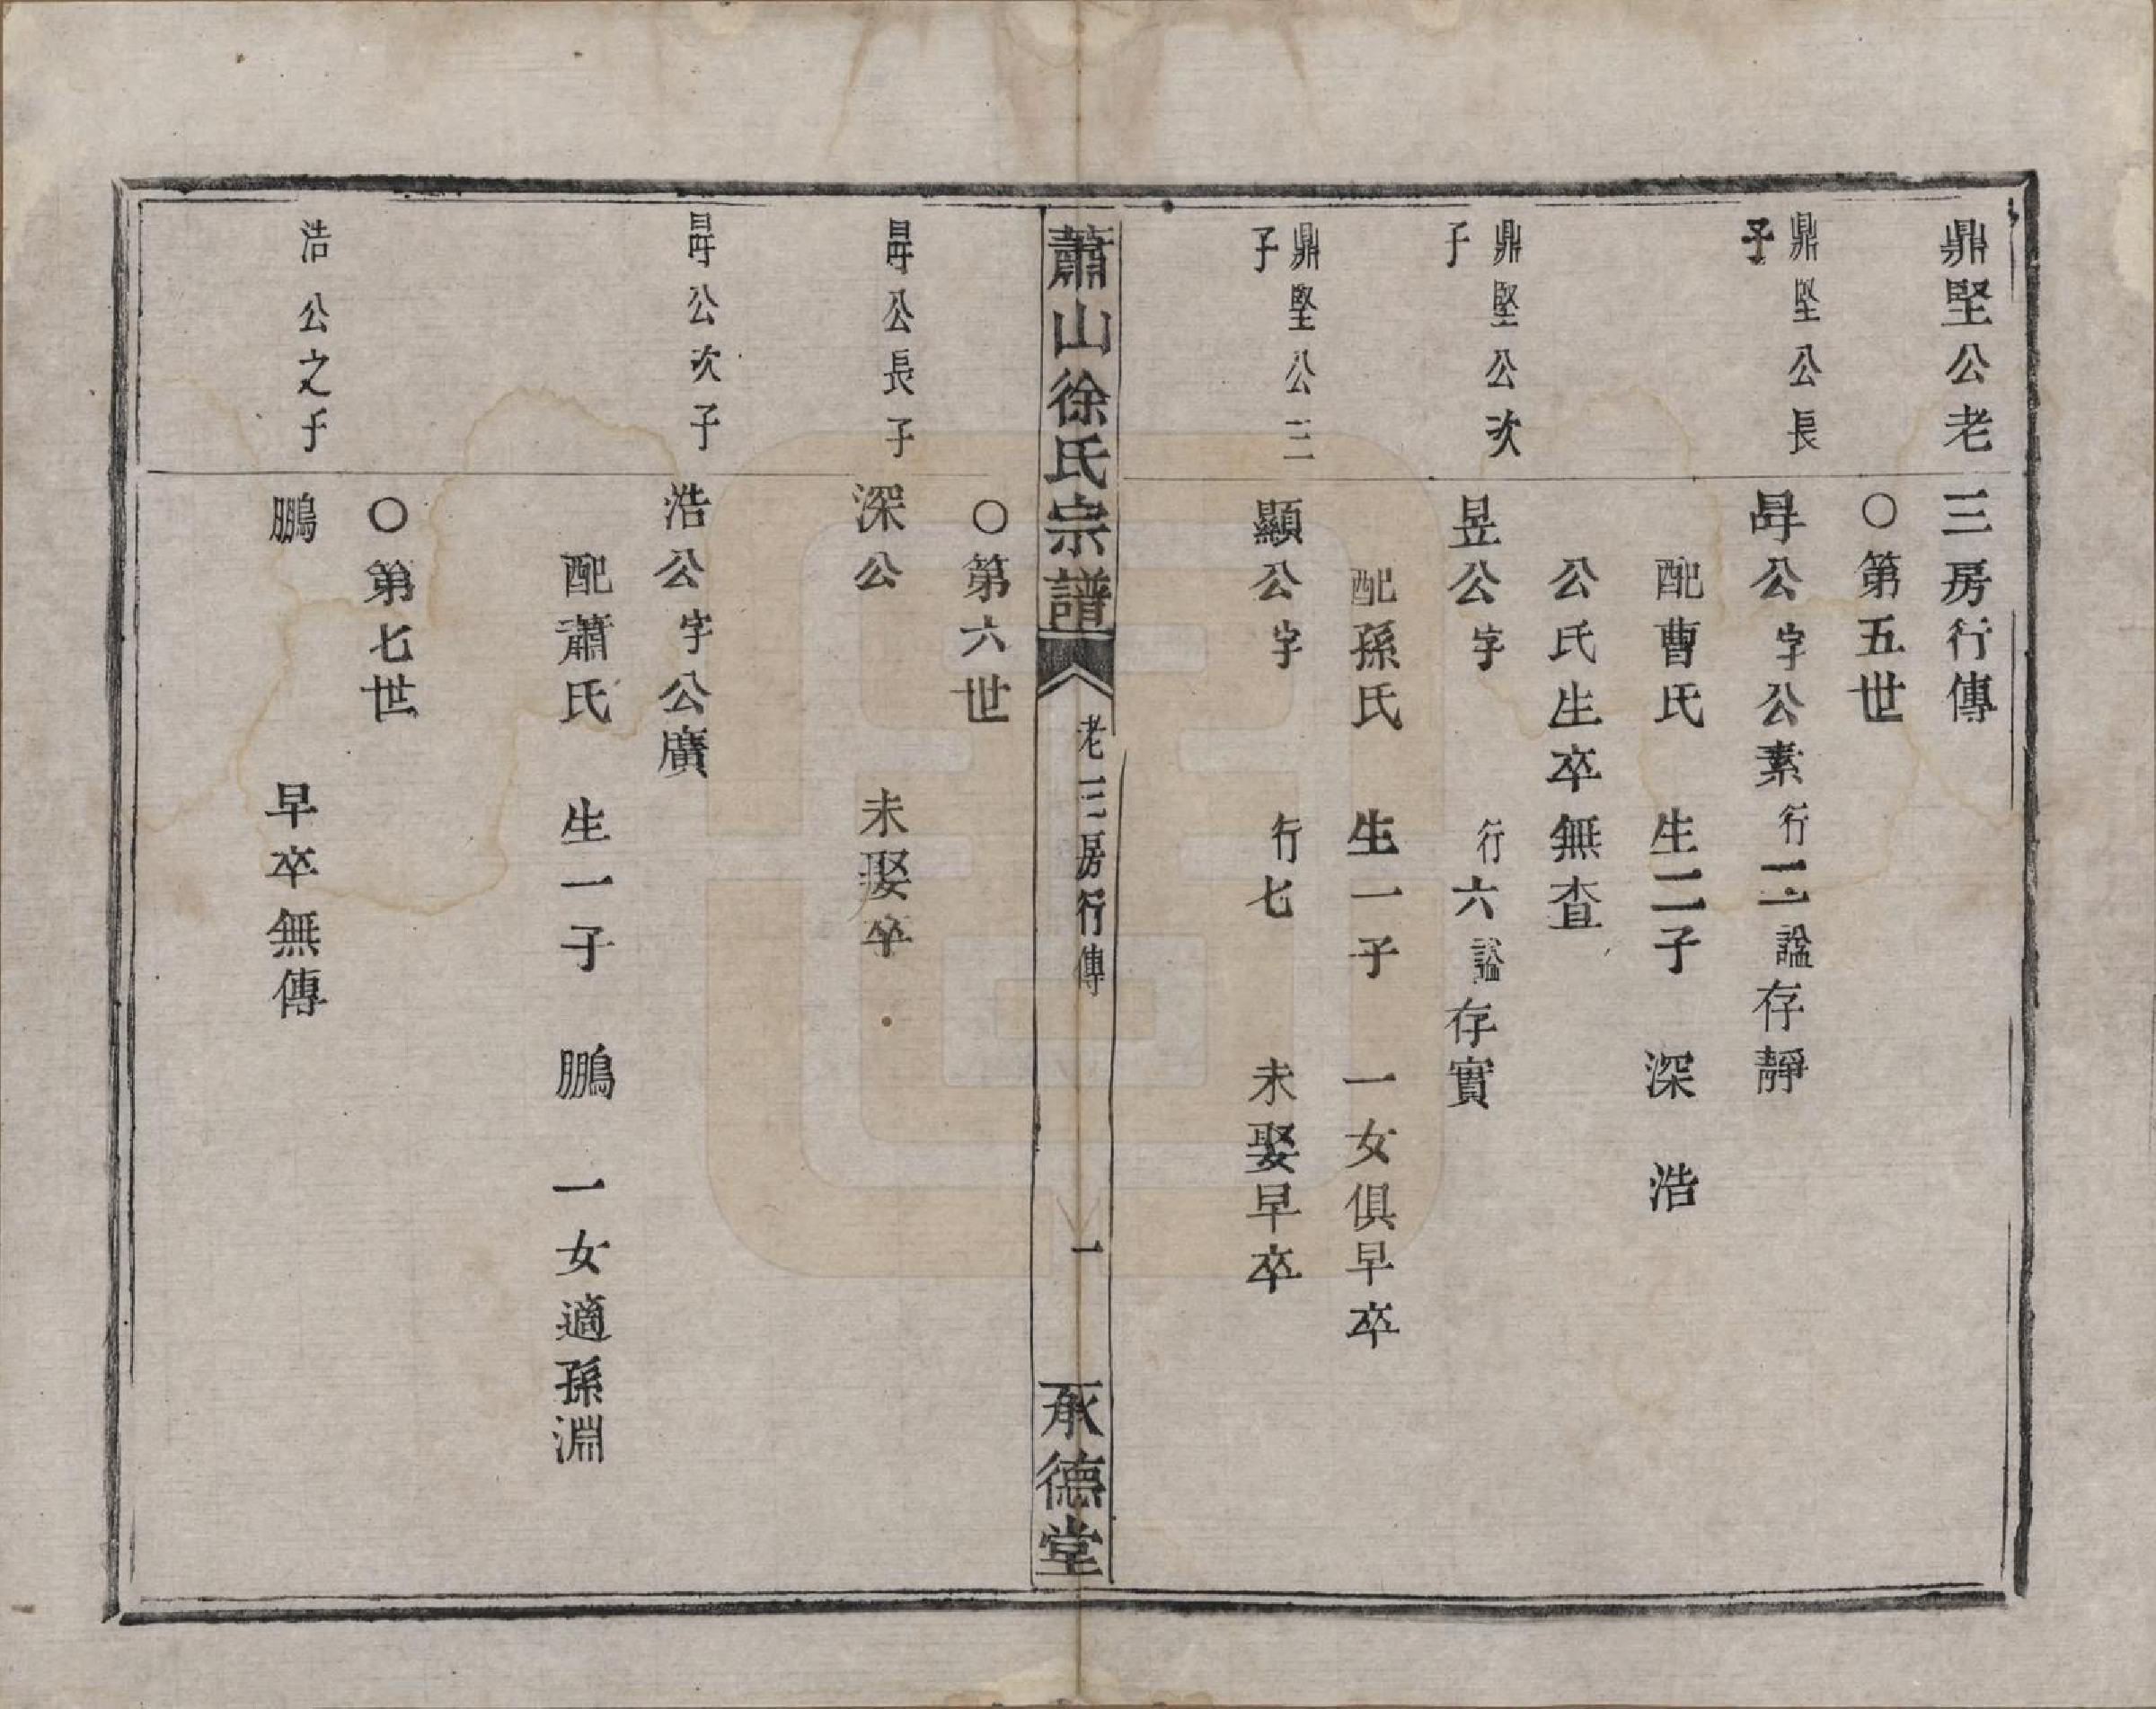 鼎堅公老三房行傳
○第五世
鼎堅公長子
曻公字公素行二諡存靜
配曹氏 生二子 深 浩
公氏生卒無查
鼎堅公次子
昱公字 行六諡存實
配孫氏 生一子 一女俱早卒
鼎堅公三子
顯公字 行七 未娶早卒
蕭山徐氏宗譜 老三房行傳 一 承德堂
○第六世
曻公長子
深公 未娶卒
曻公次子
浩公字公廣
配蕭氏 生一子 鵬 一女適孫淵
○第七世
浩公之子
鵬 早卒無傳